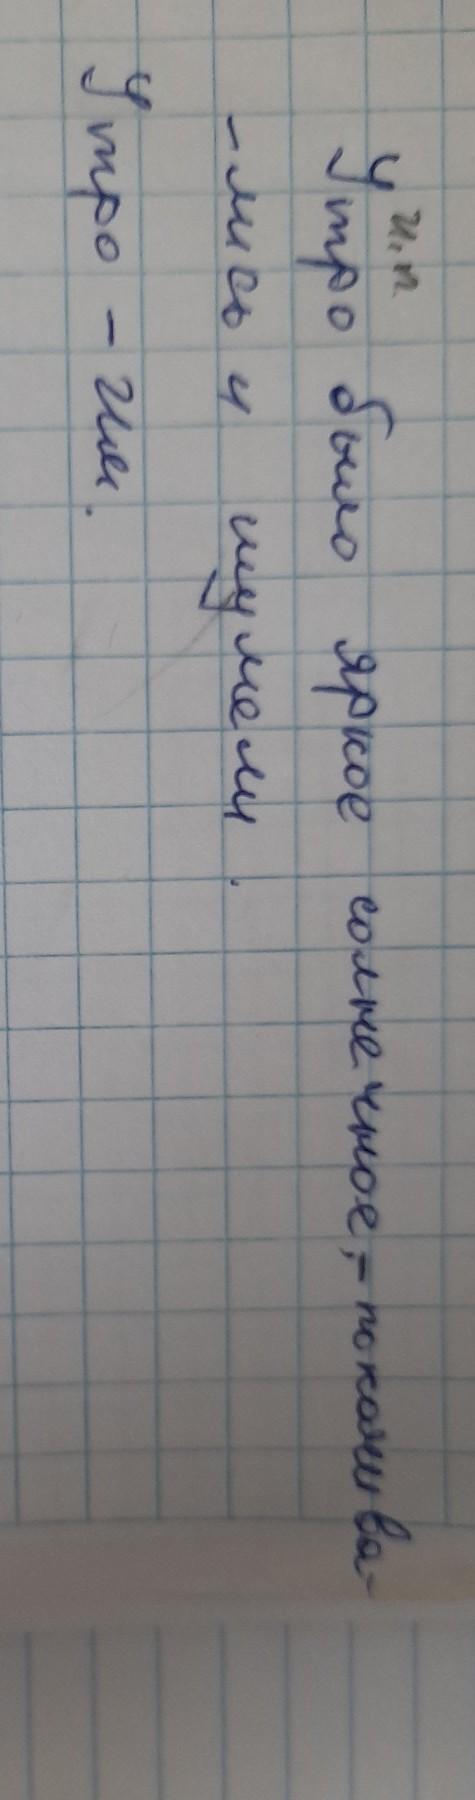 и.п.
Утро было яркое солнечное, - покачива-
- лись и шумели.
Утро - Им.